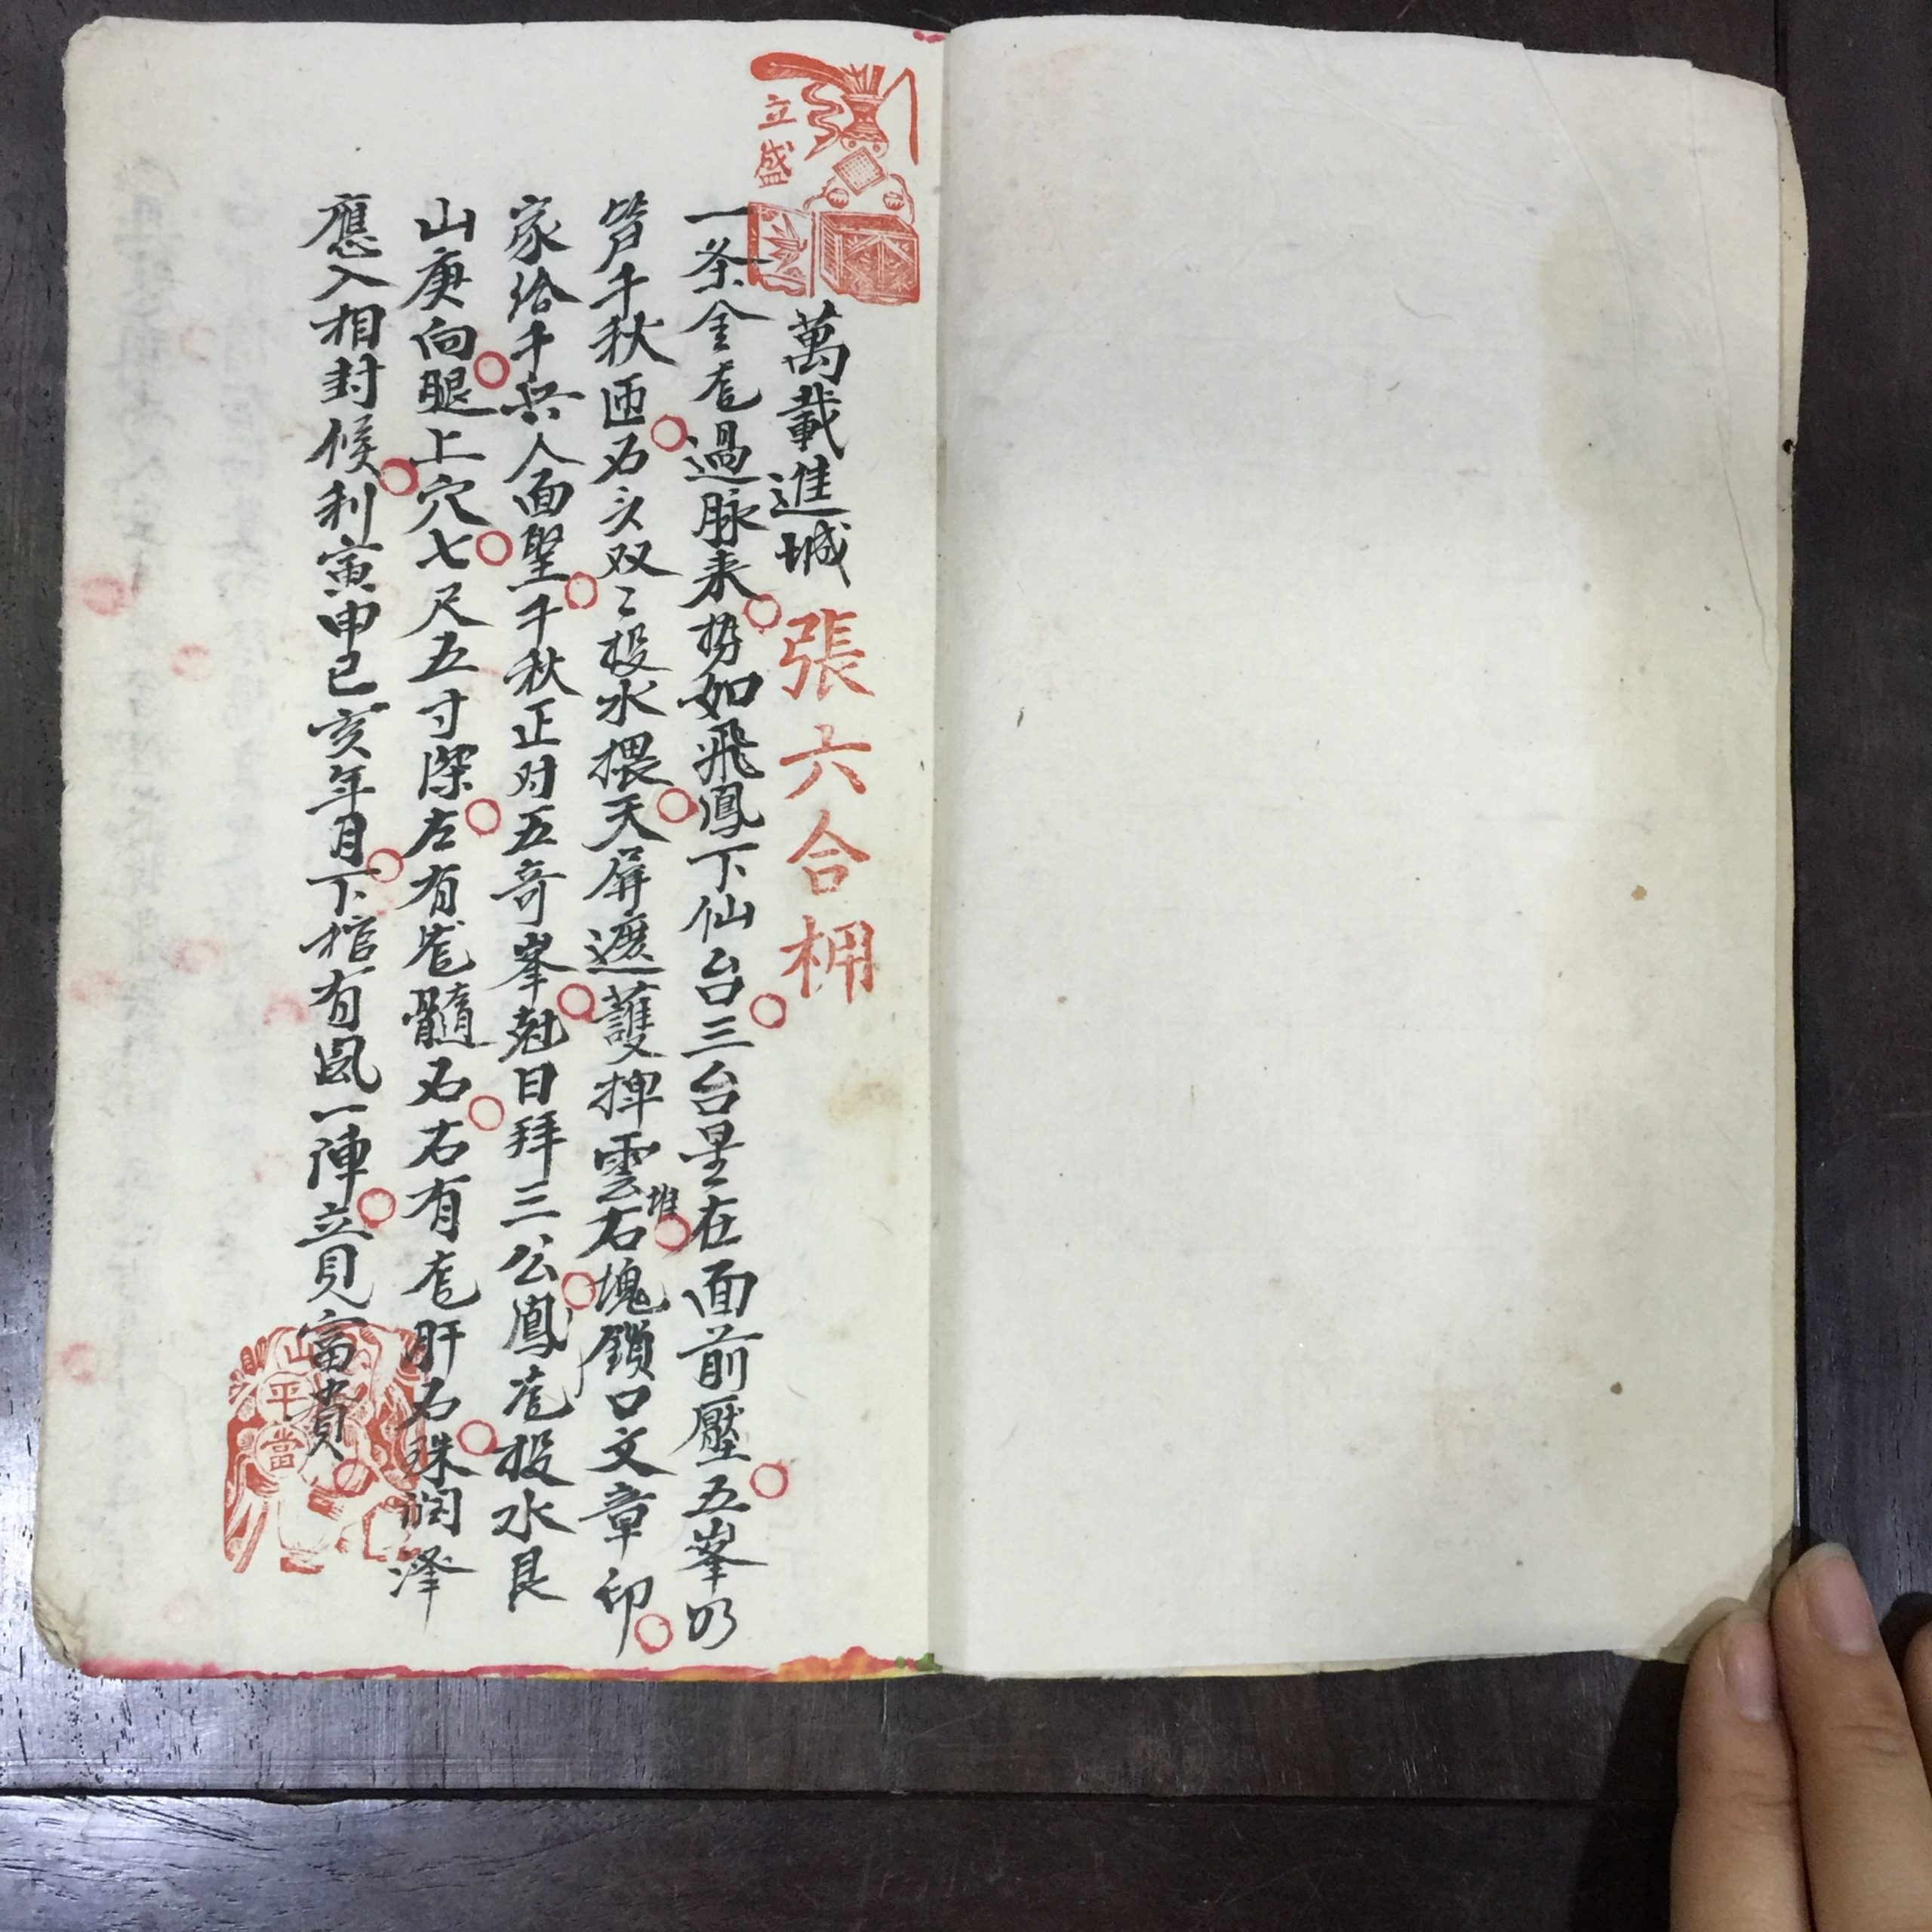 立盛
萬載進城 張六合枬
一条金龙過脉来势如飛鳳下仙台三台星在面前壓五峯乃
笄千秋匝名头双〻投水搌天屏遮護押雲堆石塊鎖口文章印
家给千兵人面聖千秋正对五奇峯尅日拜三公鳳龙投水艮
山庚向腿上穴七尺五寸深左有龙髓名右有龙肝名珠润泽
應入相封候利寅申巳亥年月下棺有風一陣立見富貴
山平當